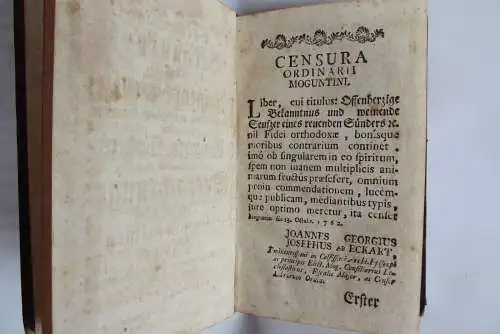 CENSURA
ORDINARII
MOGUNTINI.
Liber, cui titulus: Offenherzige
Bekanntnus und weinende
Seufzer eines reuenden Sünders ꝛc.
nil Fidei orthodoxæ, bonisque
moribus contrarium continet,
imò ob singularem in eo spiritum,
spem non inanem multiplicis ani-
marum fructûs præsefert, omnium
proin commendationem, lucém-
que publicam, mediantibus typis,
jure optimo meretur, ita censet
Moguntiæ die 13. Octobr. 1762.
JOANNES GEORGIUS
JOSEPHUS ab ECKART,
Consiliarius
Ecclesiasticus, Fiscalis Major, ac Censor
Librorum Ordin.
Erster